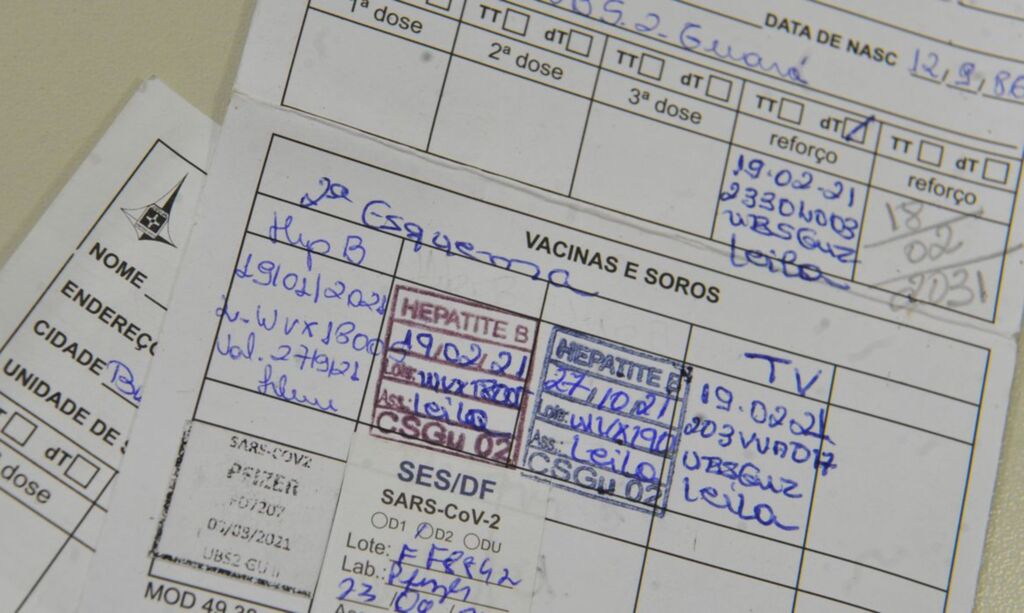 U.B.S. 2 - Guará
DATA DE NASC 12,9,86
1ª dose
TT dT
2ª dose
TT dT
3ª dose
TT dT
reforço
19-02-21
UBSGUZ
Leila
TT dT
reforço
18
02
2031
2ª Esquema
VACINAS E SOROS
Hep B
19/01/2021
Val. 27/9/21
HEPATITE B
19,02,21
Lote:
Ass.: Leila
CSGu 02
HEPATITE B
27,10,21
Lote: WVX190
Ass.: Leila
CSGu 02
TV
19.02.21
UBSGUZ
Leila
SARS-COV2
PFIZER
UBS2 GU II
SES/DF
SARS-CoV-2
D1 D2 DU
Lote:
Lab.:
MOD 49
NOME
ENDEREÇO
CIDADE
UNIDADE DE
dT
dose